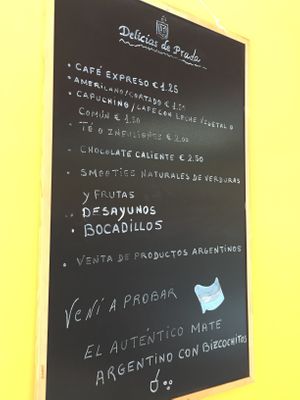 Delicias de Prada
• CAFÉ EXPRESO € 1.25
• AMERICANO/CORTADO €
• CAPUCHINO/CAFE CON LECHE VEGETAL O
COMÚN €
• TÉ O INFUSIONES € 2.00
• CHOCOLATE CALIENTE € 2.50
• SMOOTIES NATURALES DE VERDURAS
Y FRUTAS
• DESAYUNOS
• BOCADILLOS
• VENTA DE PRODUCTOS ARGENTINOS
VENÍ A PROBAR
EL AUTÉNTICO MATE
ARGENTINO CON BIZCOCHITOS